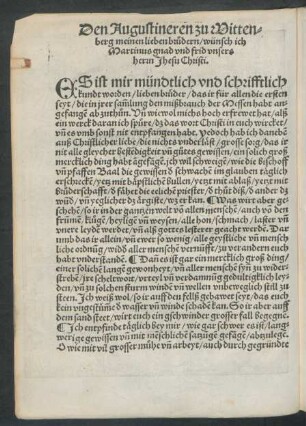 Den Augustineren zu Witten-
berg meinen lieben brüdern/ wünsch ich
Martinus gnad vnd frid vnsers
herrn Jhesu Christi.
ES ist mir mündtlich vnd schrifftlich
kundt worden/ lieben brüder/ das ir für allen die ersten
seyt/ die in jrer samlung den mißbrauch der Messen habt an-
gefangẽ abzuthün. Vñ wiewol michs hoch erfrewet hat/ als
ein werck daran ich spüre/ ds das wort Christi in euch wircket/
vñ es vmb sunst nit entpfangen habt. Yedoch hab ich danebẽ
auß Christlicher liebe/ die nichts vnderlißt/ grosse sorg/ das ir
nit alle gleycher bestẽdigkeit vñ gůtes gewissen/ ein solich groß
mercklich ding habt ãgefãgẽ. ich wil schweige/ wie die bischoff
vñ pfaffen Baal die gewissen d schwachẽ im glauben täglich
erschreckẽ/ yetz mit bäpstlichẽ bullen/ yetz mit ablaß/ yetz mit
brüderschafft/
wüd/ vñ yeglicher ds ärgste/ wz er kan. Was wirt aber ge-
schehẽ/ so ir in der gantzẽ welt vñ allen menschẽ/ auch võ den
frümẽ, klůgẽ/ heyligẽ vñ weysen/ als hon/ schmach/ laster vñ
vnere leydẽ werdet/ vñ als gottes lesterer geacht werdẽ. Dar
umb das ir allein/ vñ ewer so wenig/ alle geystliche vñ mensch
liche ordnũg/ widẘ aller menschẽ vernüfft/ zu verandern euch
habt vnderstandẽ. Dañ es ist gar ein mercklich groß ding/
einer solichẽ langẽ gewonheyt/ vñ aller menschẽ syñ zu wider-
strebẽ/ jre scheltwort/ vrteyl vñ verdamnũg gedultigklich ley-
den/ vñ zu solchen sturm windẽ vñ wellen vnbeweglich still zu
steen. Ich weiß wol/ so ir auff den felß gebawet seyt/ das euch
kein vngestümẽ ds wasser vñ winde schadẽ kan. So ir aber auff
dem sand steet/ wirt euch ein gschwinder grosser fall begegnẽ.
Ich entpfinde täglich bey mir/ wie gar schwer es ist/ langs-
werige gewissen vñ mit mẽschlichẽ satzũgẽ gefãgẽ/ abzulegẽ.
O wie mit vil grosser mühe vñ arbeyt/ auch durch gegründte